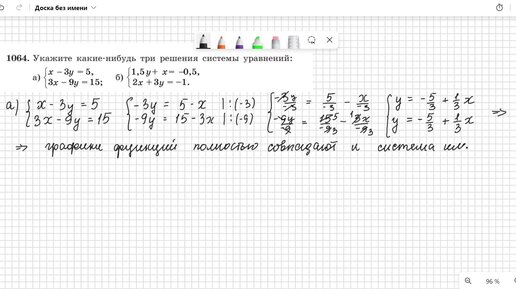 Доска без имени
1064. Укажите какие-нибудь три решения системы уравнений:
а) { x − 3y = 5, 3x − 9y = 15; б) { 1,5y + x = −0,5, 2x + 3y = −1.
а) { x − 3y = 5 { −3y = 5 − x |:(−3) { −3y/−3 = 5/−3 − x/−3 { y = −5/3 + 1/3 x
3x − 9y = 15 −9y = 15 − 3x |:(−9) −9y/−9 = 15 5/−9 3 − 1 3x/−9 3 y = −5/3 + 1/3 x ⇒
⇒ графики функций полностью совпадают и система им.
96 %